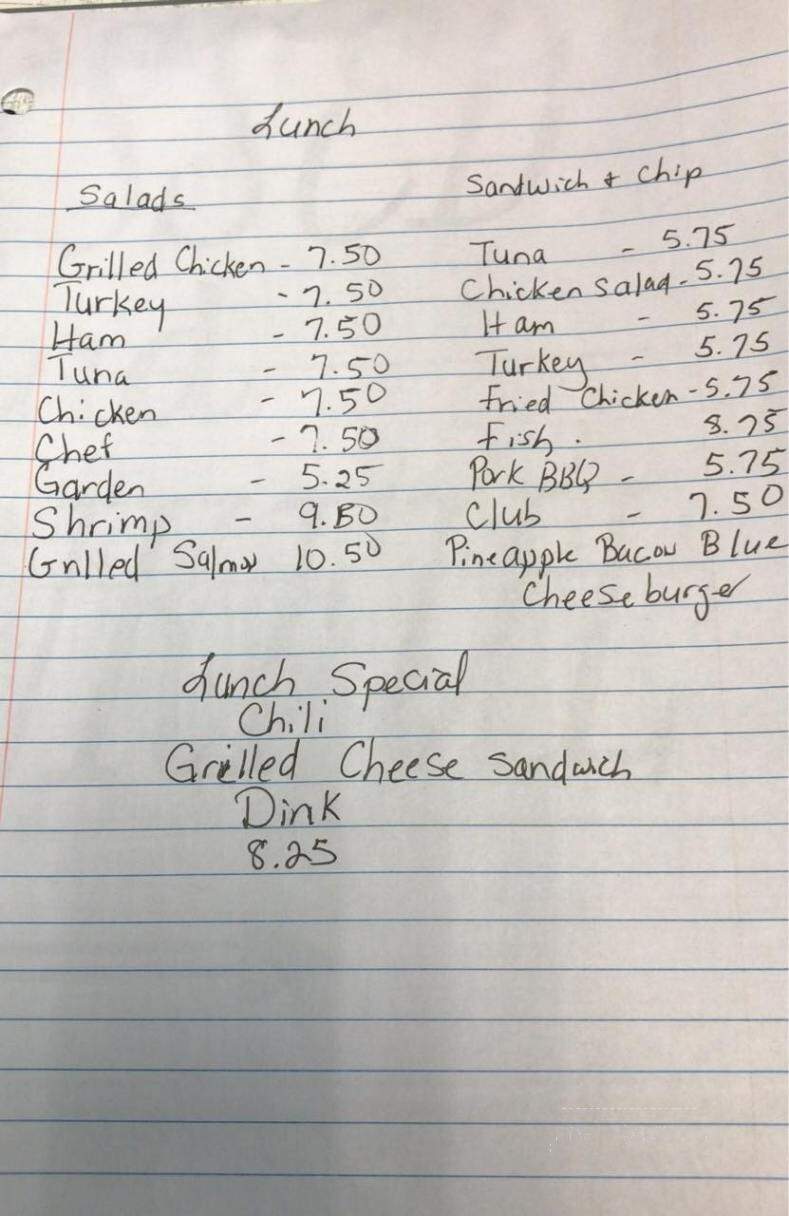 Lunch
Salads
Grilled Chicken - 7.50
Turkey - 7.50
Ham - 7.50
Tuna - 7.50
Chicken - 7.50
Chef - 7.50
Garden - 5.25
Shrimp - 9.50
Grilled Salmon 10.50
Sandwich + Chip
Tuna - 5.75
Chicken Salad - 5.75
Ham - 5.75
Turkey - 5.75
Fried Chicken - 5.75
Fish . 8.75
Pork BBQ - 5.75
Club - 7.50
Pineapple Bacon Blue
Cheeseburger
Lunch Special
Chili
Grilled Cheese Sandwich
Dink
8.25